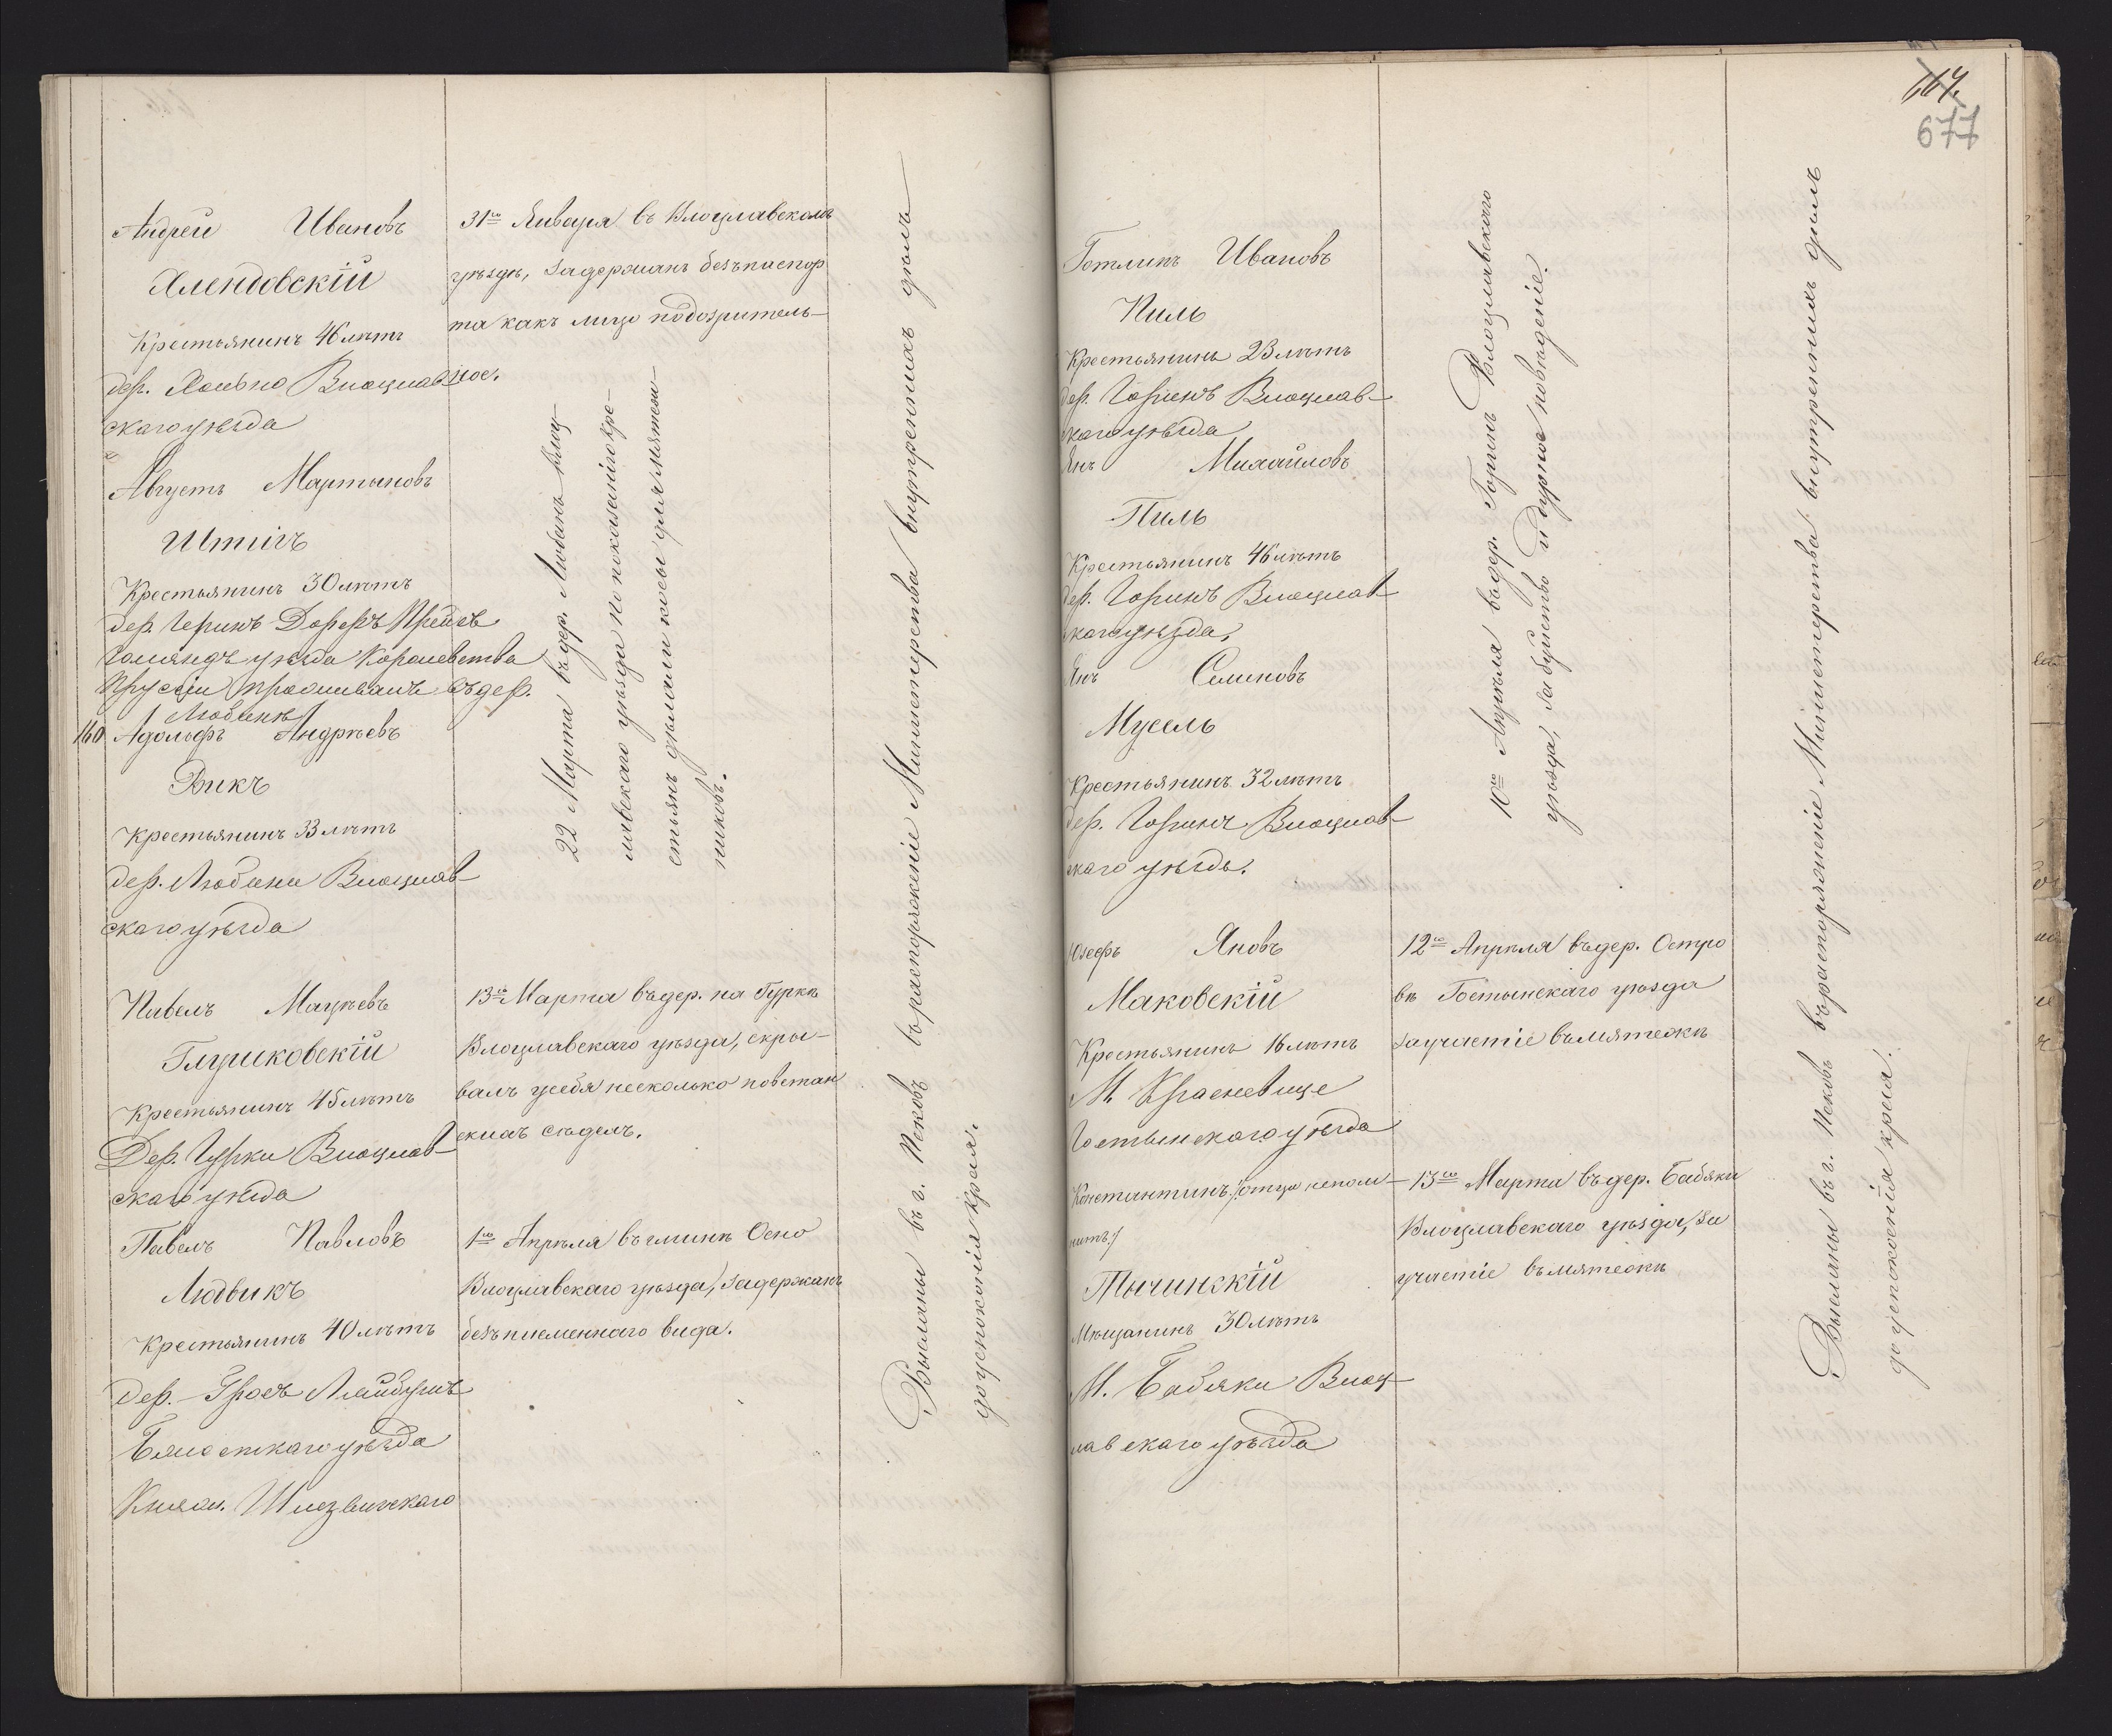 Андрей Ивановъ
Хлендовскій
Крестьянинъ 46 лѣтъ
дер. Влоцлав-
скаго уѣзда
31го Января въ Влоцлавскомъ
уѣздѣ, задержанъ безъ паспор
та какъ лицо подозритель-
ное.
Августъ Мартыновъ
Крестьянинъ 30 лѣтъ
дер.
уѣзда Королевства
Пруссіи проживалъ въ дер.
Любинѣ
160 Адольфъ Андрѣевъ
Викъ
Крестьянинъ 33 лѣтъ
дер. Любина Влоцлав-
скаго уѣзда
22 Марта въ дер. Любинъ Влоц-
лавскаго уѣзда по показанію кре-
стьянъ дѣлали косы для мятеж-
никовъ.
Павелъ Мацѣевъ
Глушковскій
Крестьянинъ 45 лѣтъ
Дер. Гурки Влоцлав-
скаго уѣзда
13го Марта въ дер. на Гуркѣ
Влоцлавскаго уѣзда, скры-
валъ у себя несколько повстан
скихъ сѣделъ.
Павелъ Павловъ
Людвикъ
Крестьянинъ 40 лѣтъ
дер. - Гросъ
уѣзда
Княж.
1го Апрѣля въ гминѣ Осно
Влоцлавскаго уѣзда, задержанъ
безъ писменнаго вида.
Высланы въ г. Псковъ въ распоряженіе Министерства внутреннихъ дѣлъ
до успокоенія края.
677
Готлипъ Ивановъ
Пиль
Крестьянинъ 23 лѣтъ
дер. Горинъ Влоцлав-
скаго уѣзда
Янъ Михайловъ
Пиль
Крестьянинъ 46 лѣтъ
дер. Горинъ Влоцлав-
скаго уѣзда,
Янъ Семеновъ
Мусель
Крестьянинъ 32 лѣтъ
дер. Горинъ Влоцлав-
скаго уѣзда.
10го Апрѣля въ дер. Горинъ Влоцлавскаго
уѣзда, за буйство и дурное поведеніе.
Юзефъ Яновъ
Маковскій
Крестьянинъ 16 лѣтъ
М. Красневице
Гостынскаго уѣзда
12го Апрѣля въ дер. Остро
вѣ Гостынскаго уѣзда
за участіе въ мятежѣ
Константинъ /:отца непом-
нитъ:/
Тычинскій
Мѣщанинъ 30 лѣтъ
М. Бабяки Влоц-
лавскаго уѣзда
13го Марта въ дер. Бабяки
Влоцлавскаго уѣзда, за
участіе въ мятежѣ
Высланы въ г. Псковъ въ распоряженіе Министерства внутреннихъ дѣлъ
до успокоенія края.